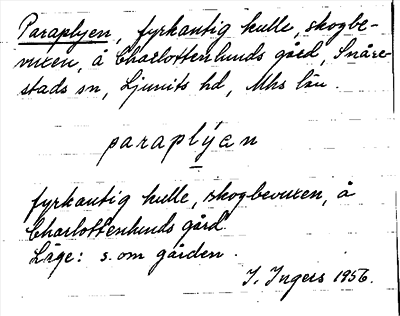 Paraplyen, fyrkantig kulle, skogbe-
vuxen, å Charlottenlunds gård, Snåre-
stads sn, Ljunits hd, Mhs län.
paraplýen
fyrkantig kulle, skogbevuxen, å
Charlottenlunds gård.
Läge: s. om gården.
I. Ingers 1956.